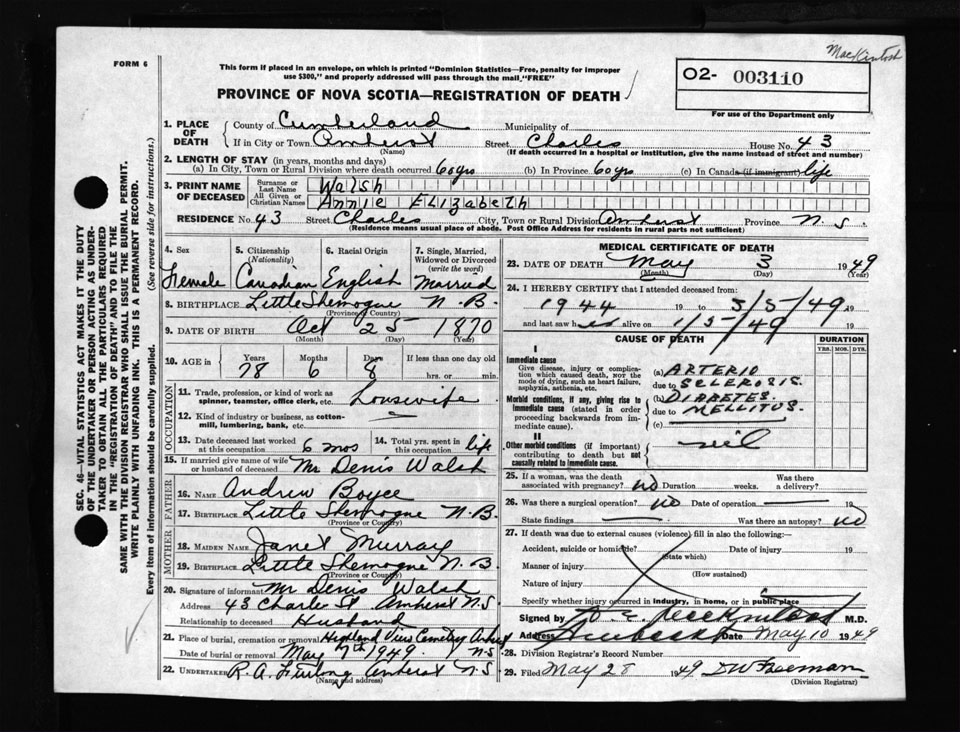 MacKintosh
FORM 6
This form if placed in an envelope, on which is printed "Dominion Statistics—Free, penalty for improper
use $300," and properly addressed will pass through the mail "FREE"
PROVINCE OF NOVA SCOTIA—REGISTRATION OF DEATH
O2- 003110
For use of the Department only
1. PLACE OF DEATH
County of Cumberland Municipality of
If in City or Town Amherst Street Charles House No. 43
(Name) (If death occurred in a hospital or institution, give the name instead of street and number)
2. LENGTH OF STAY (in years, months and days)
(a) In City, Town or Rural Division where death occurred 60 yrs (b) In Province 60 yrs (c) In Canada (if immigrant) life
3. PRINT NAME OF DECEASED
Surname or Last Name Walsh
All Given or Christian Names ANNIE ELIZABETH
RESIDENCE No. 43 Street Charles City, Town or Rural Division Amherst Province N.S.
(Residence means usual place of abode. Post Office Address for residents in rural parts not sufficient)
4. Sex
Female
5. Citizenship (Nationality)
Canadian
6. Racial Origin
English
7. Single, Married, Widowed or Divorced (write the word)
Married
8. BIRTHPLACE Little Shemogue N.B.
(Province or Country)
9. DATE OF BIRTH Oct 25 1870
(Month) (Day) (Year)
10. AGE in Years Months Days If less than one day old
78 6 8 hrs. or min.
OCCUPATION
11. Trade, profession, or kind of work as
spinner, teamster, office clerk, etc. Housewife
12. Kind of industry or business, as cotton-
mill, lumbering, bank, etc. —
13. Date deceased last worked
at this occupation 6 mos
14. Total yrs. spent in
this occupation life
15. If married give name of wife
or husband of deceased Mr Denis Walsh
FATHER
16. NAME Andrew Boyce
17. BIRTHPLACE Little Shemogue N.B
(Province or Country)
MOTHER
18. MAIDEN NAME Janet Murray
19. BIRTHPLACE Little Shemogue N.B.
(Province or Country)
20. Signature of informant Mr Denis Walsh
Address 43 Charles St Amherst N.S
Relationship to deceased Husband
21. Place of burial, cremation or removal Highland View Cemetery Amherst
Date of burial or removal May 7th 1949 N.S
22. UNDERTAKER R.A. Furlong Amherst N.S
(Name and address)
MEDICAL CERTIFICATE OF DEATH
23. DATE OF DEATH May 3 1949
(Month) (Day) (Year)
24. I HEREBY CERTIFY that I attended deceased from:
1944 19 to 3/5/49 19
and last saw her alive on 1/5/49 19
CAUSE OF DEATH
DURATION
YRS. MOS. DYS.
I
Immediate cause
Give disease, injury or complica-
tion which caused death, not the
mode of dying, such as heart failure,
asphyxia, asthenia, etc.
(a) ARTERIO
due to SCLEROSIS.
Morbid conditions, if any, giving rise to
immediate cause (stated in order
proceeding backwards from im-
mediate cause).
(b) DIABETES
due to MELLITUS.
(c)
II
Other morbid conditions (if important)
contributing to death but not
causally related to immediate cause.
nil
25. If a woman, was the death
associated with pregnancy? no Duration weeks. Was there
a delivery?
26. Was there a surgical operation? no Date of operation — 19
State findings — Was there an autopsy? no
27. If death was due to external causes (violence) fill in also the following:
Accident, suicide or homicide? Date of injury 19
(State which)
Manner of injury
(How sustained)
Nature of injury
Specify whether injury occurred in industry, in home, or in public place
Signed MacKintosh M.D.
Address Date May 10 1949
28. Division Registrar's Record Number
29. Filed May 28 1949 DW Freeman
(Division Registrar)
SEC. 46—VITAL STATISTICS ACT MAKES IT THE DUTY
OF THE UNDERTAKER OR PERSON ACTING AS UNDER-
TAKER TO OBTAIN ALL THE PARTICULARS REQUIRED
IN THE "REGISTRATION OF DEATH" AND TO FILE THE
SAME WITH THE DIVISION REGISTRAR WHO SHALL ISSUE THE BURIAL PERMIT.
WRITE PLAINLY WITH UNFADING INK. THIS IS A PERMANENT RECORD.
Every item of information should be carefully supplied. (See reverse side for instructions.)